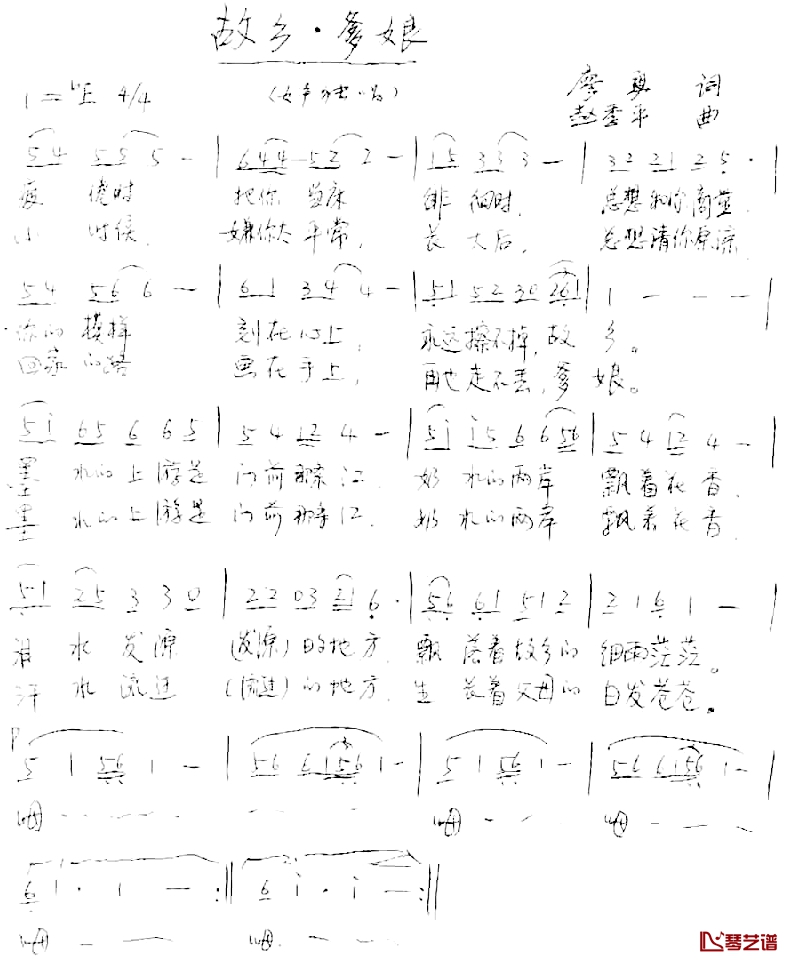 故乡·爹娘
1=♭E 4/4 (女声独唱) 廖 词
赵季平 曲
5 4 5 5 5 - | 6 4 4 5 2 2 - | 1 5 3 3 3 - | 3 2 2 1 2 5 · |
疲 倦时 把你 当床 徘 徊时, 总想和你商量.
小 时候, 嫌你太 平常, 长 大后, 总想请你原谅
5 4 5 6 6 - | 6 1 3 4 4 - | 5 1 5 2 3 0 2 6 1 | 1 - - - |
你的 模样 刻在 心上, 永远擦不掉, 故 乡。
回家 的路 画在 手上, 再也走不丢, 爹 娘。
5 i 6 5 6 6 5 | 5 4 1 2 4 - | 5 i i 5 6 6 5 6 | 5 4 1 2 4 - |
墨 水的上游是 门前那条江. 奶 水的两岸 飘着花香.
墨 水的上游是 门前那条江. 奶 水的两岸 飘着花香.
5 1 2 5 3 3 0 | 2 2 0 3 2 1 6 · | 5 6 6 1 5 1 2 | 2 1 6 1 - |
泪 水 发 源 (发源)的地方. 飘 落着故乡的 细雨茫茫。
汗 水 流进 (流进)的地方. 生 长着父母的 白发苍苍。
p 5 1 5 6 1 - | 5 6 6 1 5 6 1 - | 5 1 5 6 1 - | 5 6 6 1 5 6 1 - |
呣 - - - - - - - - 呣 - - 呣 - - -
6 1 · 1 - :|| 6 i · i - :||
呣 - - 呣. - - -
琴艺谱